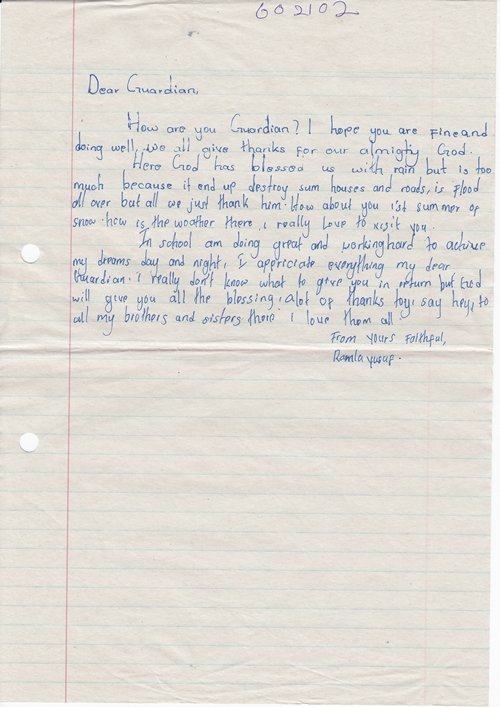 602102
Dear Guardian,
How are you Guardian? I hope you are fine and
doing well, we all give thanks for our almigty God.
Here God has blessed us with rain but is too
much because it end up destroy sum houses and roads, is flood
all over but all we just thank him. How about you is't summer or
snow. how is the weather there, i really love to visit you.
In school am doing great and working hard to achive
my dreams day and night, I appriciate everything my dear
Guardian. i really don't know what to give you in return but God
will give you all the blessing. alot of thanks to say hey, to
all my brothers and sisters there i love them all.
From yours faithful,
Ramla yusuf.